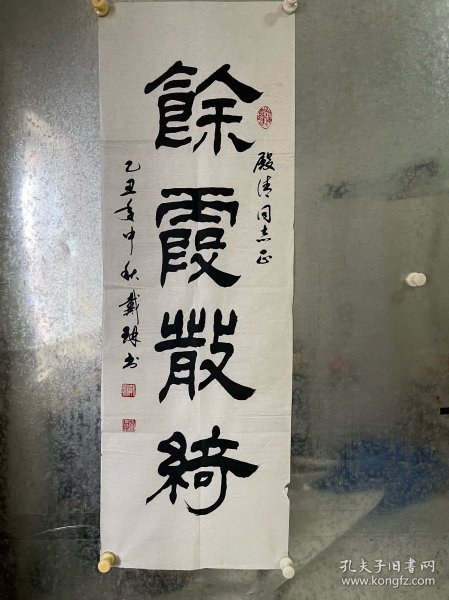 殿清同志正
餘霞散綺
乙丑年中秋戴琳书
孔夫子旧书网
www.kongfz.com